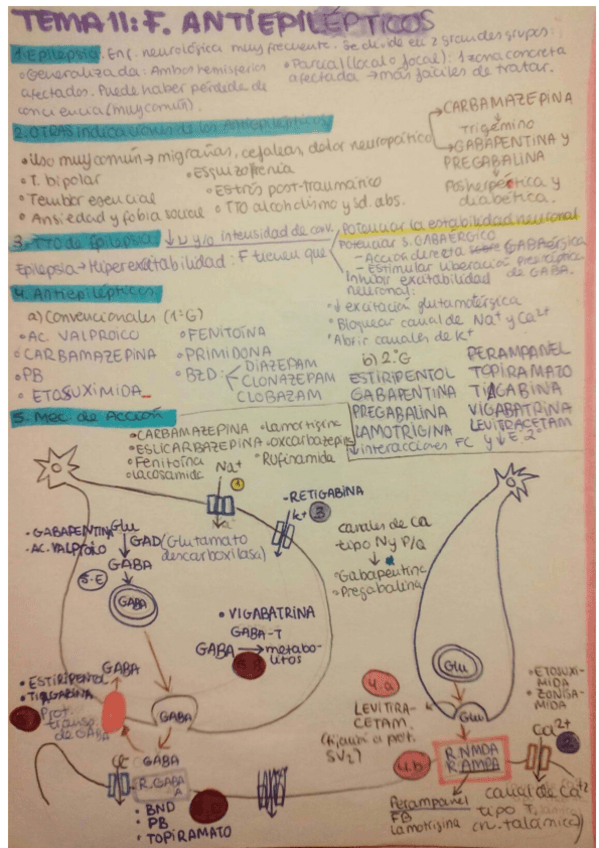 TEMA 11: F. ANTIEPILÉPTICOS
1. Epilepsia. Enf. neurológica muy frecuente. Se divide en 2 grandes grupos:
• Generalizada: Ambos hemisferios
afectados. Puede haber pérdida de
conciencia (muy común).
• Parcial (local o focal): 1 zona concreta
afectada → más fáciles de tratar.
2. OTRAS indicaciones de los Antiepilépticos
• Uso muy común → migrañas, cefaleas, dolor neuropático
CARBAMAZEPINA
↓
Trigémino
GABAPENTINA Y
PREGABALINA
↓
Posherpética y
diabética.
• T. bipolar
• Temblor esencial
• Ansiedad y fobia social
• Esquizofrenia
• Estrés post-traumático
• TTO alcoholismo y sd. abs.
3. TTO de Epilepsia ↓ nº y/o intensidad de conv.
Epilepsia → Hiperexcitabilidad: F tienen que
Potenciar la estabilidad neuronal
Potenciar S. GABAÉRGICO
- Acción directa GABAérgica
- Estimular liberación presináptica
de GABA.
Inhibir excitabilidad
neuronal:
• ↓ excitación glutamatérgica
• Bloquear canal de Na⁺ y Ca²⁺
• Abrir canales de K⁺
4. Antiepilépticos
a) Convencionales (1ªG)
• AC. VALPROICO
• CARBAMAZEPINA
• PB
• ETOSUXIMIDA
• FENITOÍNA
• PRIMIDONA
• BZD: DIAZEPAM
CLONAZEPAM
CLOBAZAM
b) 2ªG
ESTIRIPENTOL
GABAPENTINA
PREGABALINA
LAMOTRIGINA
PERAMPANEL
TOPIRAMATO
TIAGABINA
VIGABATRINA
LEVITRACETAM
↓ interacciones FC y ↓ E 2º
5. Mec. de Acción
• CARBAMAZEPINA
• ESLICARBAZEPINA
• Fenitoína
• Lacosamida
• Lamotrigina
• oxcarbazepina
• Rufinamida
Na⁺
1
- RETIGABINA
K⁺
3
• GABAPENTINA
• AC. VALPROICO
Glu
GAD (Glutamato
descarboxilasa)
GABA
5.E
GABA
canales de Ca
tipo N y P/Q
• Gabapentina
• Pregabalina
• VIGABATRINA
GABA-T
GABA → metabo-
litos
• ESTIRIPENTOL
• TIAGABINA
GABA
Prot.
transp.
de GABA
GABA
GABA
R. GABA
A
• BND
• PB
• TOPIRAMATO
Glu
4.a
LEVITIRA-
CETAM.
SV₂)
Glu
4.b
R. NMDA
R. AMPA
Perampanel
Lamotrigina
• ETOSUXI-
MIDA
• ZONISA-
MIDA
Ca²⁺
2
canal de Ca⁺²
tipo T
(n. talámica)